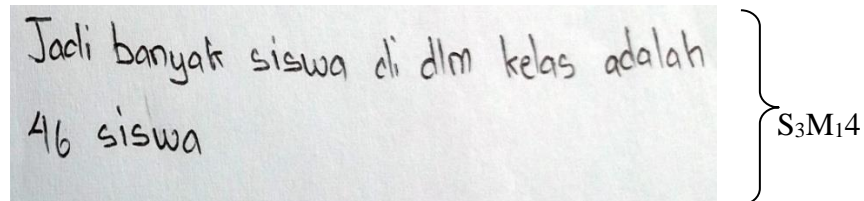 Jadi banyak siswa di dlm kelas adalah
46 siswa
S₃M₁4